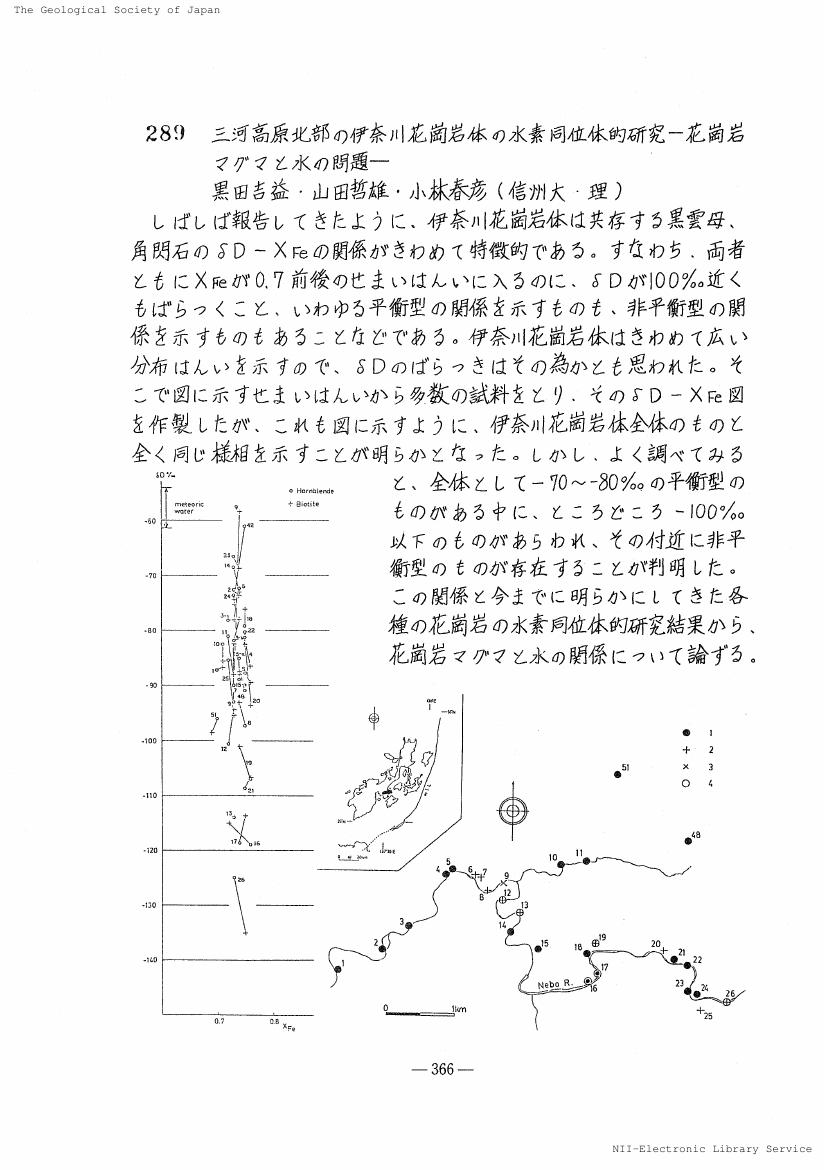 The Geological Society of Japan
289 三河高原北部の伊奈川花崗岩体の水素同位体的研究－花崗岩
マグマと水の問題－
黒田吉益・山田哲雄・小林春彦(信州大・理)
しばしば報告してきたように、伊奈川花崗岩体は共存する黒雲母、
角閃石のδD－XFeの関係がきわめて特徴的である。すなわち、両者
ともにXFeが0.7前後のせまいはんいに入るのに、δDが100‰近く
もばらっくこと、いわゆる平衡型の関係を示すものも、非平衡型の関
係を示すものもあることなどである。伊奈川花崗岩体はきわめて広い
分布はんいを示すので、δDのばらっきはその為かとも思われた。そ
こで図に示すせまいはんいから多数の試料をとり、そのδD－XFe図
を作製したが、これも図に示すように、伊奈川花崗岩体全体のものと
全く同じ様相を示すことが明らかとなった。しかし、よく調べてみる
と、全体として－70～－80‰の平衡型の
ものがある中に、ところどころ－100‰
以下のものがあらわれ、その付近に非平
衡型のものが存在することが判明した。
この関係と今までに明らかにしてきた各
種の花崗岩の水素同位体的研究結果から、
花崗岩マグマと水の関係について論ずる。
δD‰
Hornblende
Biotite
meteoric
water
-60
-70
-80
-90
-100
-110
-120
-130
-140
0.7
0.8
XFe
1
2
3
4
51
48
11
10
9
8
7
6
5
4
3
2
1
12
13
14
15
16
17
18
19
20
21
22
23
24
25
26
Nebo R.
0
1km
—366—
NII-Electronic Library Service